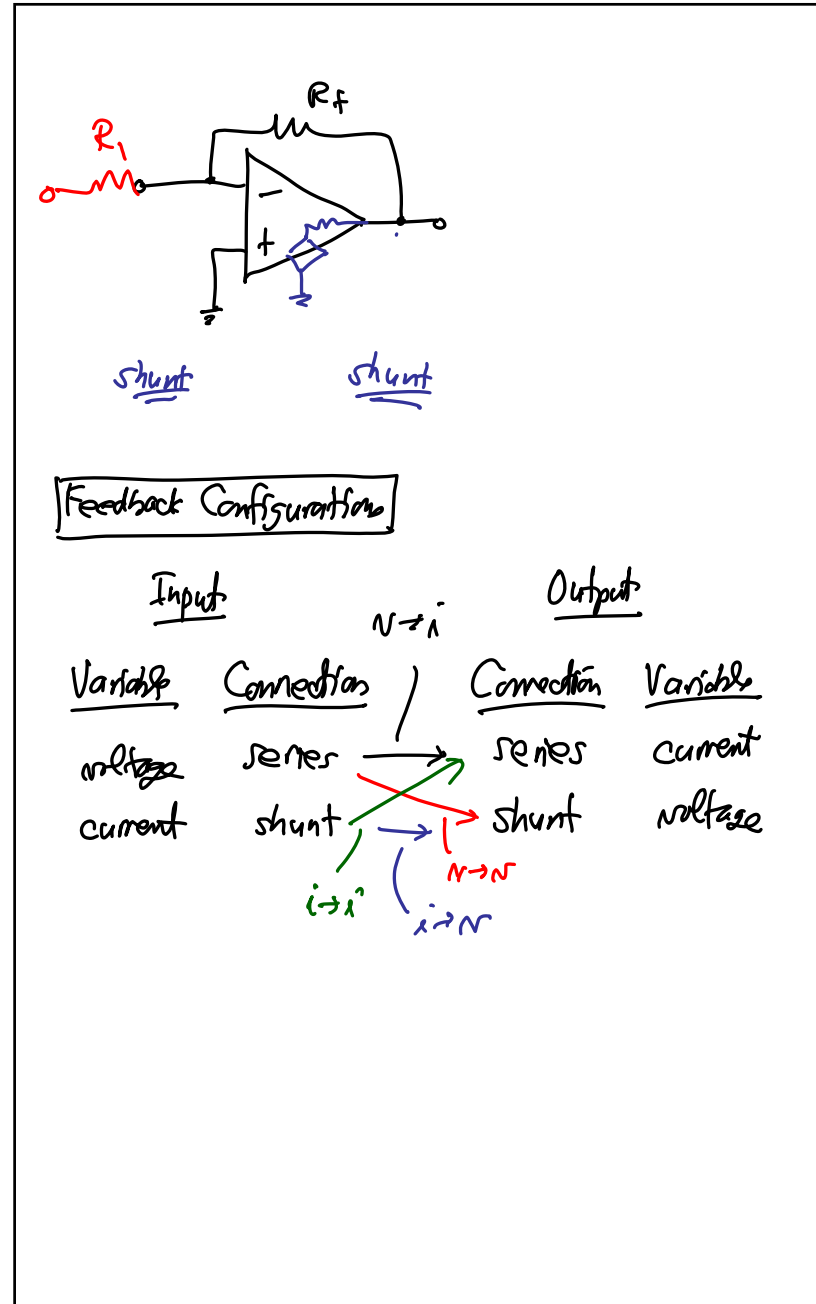 R_f
R_1
−
+
shunt shunt
Feedback Configurations
Input Output
v→i
Variable Connection Connection Variable
voltage series series current
current shunt shunt voltage
v→v
i→i
i→v